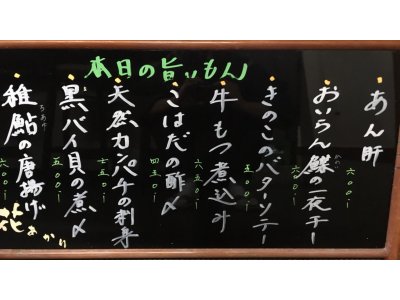 本日の旨いもん
あん肝
六〇〇ー
おいらん鰈の一夜干ー
かれい
六〇〇ー
きのこのバターソテー
五〇〇ー
牛もつ煮込み
六五〇ー
こはだの酢〆
四五〇ー
天然カンパチの刺身
七五〇ー
黒バイ貝の煮〆
五〇〇ー
稚鮎の唐揚げ
ちあゆ
六〇〇ー
花あかり